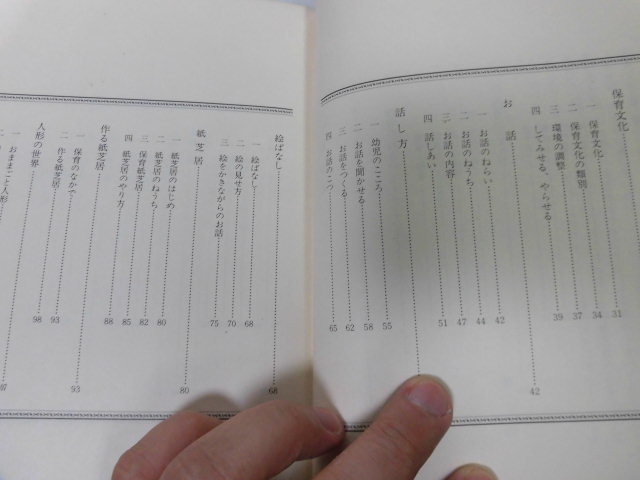 保育文化
一 保育文化 31
二 保育文化の類別 34
三 環境の調整 37
四 してみせる、やらせる 39
お話 42
一 お話のねらい 42
二 お話のねうち 44
三 お話の内容 47
四 話しあい 51
話し方
一 幼児のこころ 55
二 お話を聞かせる 58
三 お話をつくる 62
四 お話のこつ 65
絵ばなし 68
一 絵ばなし 68
二 絵の見せ方 70
三 絵をかきながらのお話 75
紙芝居 80
一 紙芝居のはじめ
二 紙芝居のねうち 80
三 保育紙芝居 82
四 紙芝居のやり方 85
作る紙芝居 93
一 保育のなかで 88
二 作る紙芝居 93
人形の世界
一 おままごと人形 98